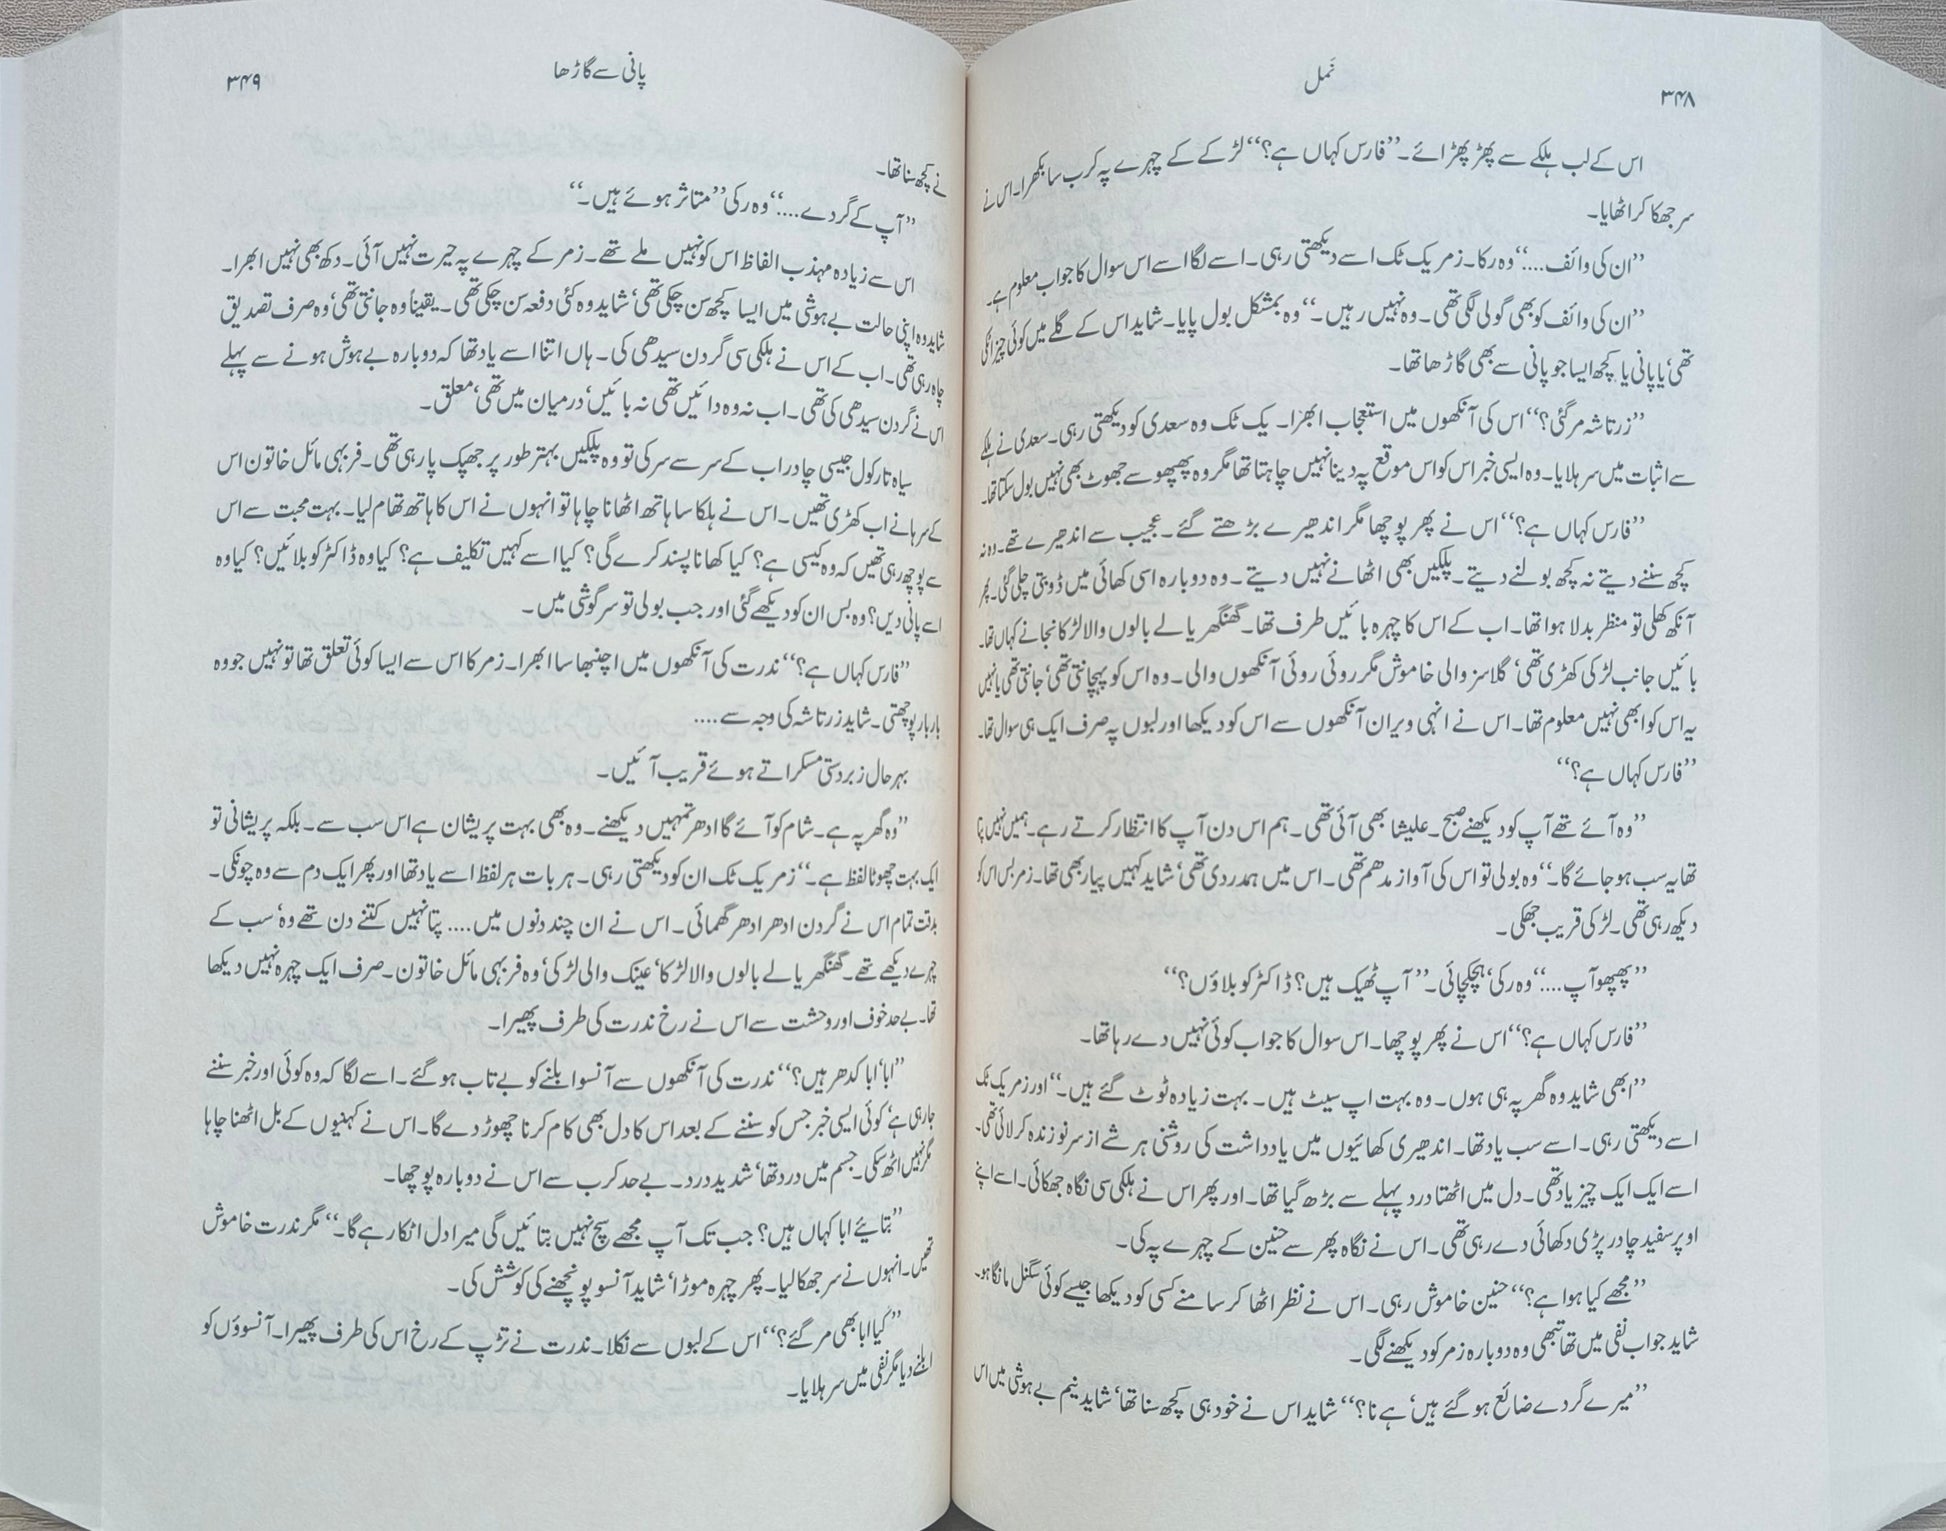 ۳۴۸
نَمل
اس کے لب ہلکے سے پھڑ پھڑائے۔’’فارس کہاں ہے؟‘‘ لڑکے کے چہرے پہ کرب سا بکھرا۔ اس نے
سر جھکا کر اٹھایا۔
’’ان کی وائف....‘‘ وہ رکا۔ زمر یک ٹک اسے دیکھتی رہی۔ اسے لگا اسے اس سوال کا جواب معلوم ہے۔
’’ان کی وائف کو بھی گولی لگی تھی۔ وہ نہیں رہیں۔‘‘ وہ بمشکل بول پایا۔ شاید اس کے گلے میں کوئی چیز اٹکی
تھی‘ یا پانی یا کچھ ایسا جو پانی سے بھی گاڑھا تھا۔
’’زرتاشہ مرگئی؟‘‘ اس کی آنکھوں میں استعجاب ابھرا۔ یک ٹک وہ سعدی کو دیکھتی رہی۔ سعدی نے ہلکے
سے اثبات میں سر ہلایا۔ وہ ایسی خبر اس کو اس موقع پہ دینا نہیں چاہتا تھا مگر وہ پھپھو سے جھوٹ بھی نہیں بول سکتا تھا۔
’’فارس کہاں ہے؟‘‘ اس نے پھر پوچھا مگر اندھیرے بڑھتے گئے۔ عجیب سے اندھیرے تھے۔ وہ نہ
کچھ سننے دیتے نہ کچھ بولنے دیتے۔ پلکیں بھی اٹھانے نہیں دیتے۔ وہ دوبارہ اسی کھائی میں ڈوبتی چلی گئی۔ پھر
آنکھ کھلی تو منظر بدلا ہوا تھا۔ اب کے اس کا چہرہ بائیں طرف تھا۔ گھنگھریالے بالوں والا لڑکا نجانے کہاں تھا۔
بائیں جانب لڑکی کھڑی تھی‘ گلاسز والی خاموش مگر روئی روئی آنکھوں والی۔ وہ اس کو پہچانتی تھی‘ جانتی تھی یا نہیں
یہ اس کو ابھی نہیں معلوم تھا۔ اس نے انہی ویران آنکھوں سے اس کو دیکھا اور لبوں پہ صرف ایک ہی سوال تھا۔
’’فارس کہاں ہے؟‘‘
’’وہ آئے تھے آپ کو دیکھنے صبح۔ علیشا بھی آئی تھی۔ ہم اس دن آپ کا انتظار کرتے رہے۔ ہمیں نہیں پتا
تھا یہ سب ہو جائے گا۔‘‘ وہ بولی تو اس کی آواز مدھم تھی۔ اس میں ہمدردی تھی‘ شاید کہیں پیار بھی تھا۔ زمر بس اس کو
دیکھ رہی تھی۔ لڑکی قریب جھکی۔
’’پھپھو آپ....‘‘ وہ رکی‘ ہچکچائی۔ ’’آپ ٹھیک ہیں؟ ڈاکٹر کو بلاؤں؟‘‘
’’فارس کہاں ہے؟‘‘ اس نے پھر پوچھا۔ اس سوال کا جواب کوئی نہیں دے رہا تھا۔
’’ابھی شاید وہ گھر پہ ہی ہوں۔ وہ بہت اپ سیٹ ہیں۔ بہت زیادہ ٹوٹ گئے ہیں۔‘‘ اور زمر یک ٹک
اسے دیکھتی رہی۔ اسے سب یاد تھا۔ اندھیری کھائیوں میں یادداشت کی روشنی ہر شے از سر نو زندہ کر لائی تھی۔
اسے ایک ایک چیز یاد تھی۔ دل میں اٹھتا درد پہلے سے بڑھ گیا تھا۔ اور پھر اس نے ہلکی سی نگاہ جھکائی۔ اسے اپنے
اوپر سفید چادر پڑی دکھائی دے رہی تھی۔ اس نے نگاہ پھر سے حنین کے چہرے پہ کی۔
’’مجھے کیا ہوا ہے؟‘‘ حنین خاموش رہی۔ اس نے نظر اٹھا کر سامنے کسی کو دیکھا جیسے کوئی سگنل مانگا ہو۔
شاید جواب نفی میں تھا تبھی وہ دوبارہ زمر کو دیکھنے لگی۔
’’میرے گردے ضائع ہو گئے ہیں‘ ہے نا؟‘‘ شاید اس نے خود ہی کچھ سنا تھا‘ شاید نیم بے ہوشی میں اس
پانی سے گاڑھا
۳۴۹
نے کچھ سنا تھا۔
’’آپ کے گردے....‘‘ وہ رکی ’’متاثر ہوئے ہیں۔‘‘
اس سے زیادہ مہذب الفاظ اس کو نہیں ملے تھے۔ زمر کے چہرے پہ حیرت نہیں آئی۔ دکھ بھی نہیں ابھرا۔
شاید وہ اپنی حالت بے ہوشی میں ایسا کچھ سن چکی تھی‘ شاید وہ کئی دفعہ سن چکی تھی۔ یقیناً وہ جانتی تھی‘ وہ صرف تصدیق
چاہ رہی تھی۔ اب کے اس نے ہلکی سی گردن سیدھی کی۔ ہاں اتنا اسے یاد تھا کہ دوبارہ بے ہوش ہونے سے پہلے
اس نے گردن سیدھی کی تھی۔ اب نہ وہ دائیں تھی نہ بائیں‘ درمیان میں تھی‘ معلق۔
سیاہ تارکول جیسی چادر اب کے سر سے سرکی تو وہ پلکیں بہتر طور پر جھپک پا رہی تھی۔ فربہی مائل خاتون اس
کے سرہانے اب کھڑی تھیں۔ اس نے ہلکا سا ہاتھ اٹھانا چاہا تو انہوں نے اس کا ہاتھ تھام لیا۔ بہت محبت سے اس
سے پوچھ رہی تھیں کہ وہ کیسی ہے؟ کیا کھانا پسند کرے گی؟ کیا اسے کہیں تکلیف ہے؟ کیا وہ ڈاکٹر کو بلائیں؟ کیا وہ
اسے پانی دیں؟ وہ بس ان کو دیکھے گئی اور جب بولی تو سرگوشی میں۔
’’فارس کہاں ہے؟‘‘ ندرت کی آنکھوں میں اچنبھا سا ابھرا۔ زمر کا اس سے ایسا کوئی تعلق تھا تو نہیں جو وہ
بار بار پوچھتی۔ شاید زرتاشہ کی وجہ سے....
بہرحال زبردستی مسکراتے ہوئے قریب آئیں۔
’’وہ گھر پہ ہے۔ شام کو آئے گا ادھر تمہیں دیکھنے۔ وہ بھی بہت پریشان ہے اس سب سے۔ بلکہ پریشانی تو
ایک بہت چھوٹا لفظ ہے۔‘‘ زمر یک ٹک ان کو دیکھتی رہی۔ ہر بات ہر لفظ اسے یاد تھا اور پھر ایک دم سے وہ چونکی۔
بدقت تمام اس نے گردن ادھر ادھر گھمائی۔ اس نے ان چند دنوں میں.... پتا نہیں کتنے دن تھے وہ‘ سب کے
چہرے دیکھے تھے۔ گھنگھریالے بالوں والا لڑکا‘ عینک والی لڑکی‘ وہ فربہی مائل خاتون۔ صرف ایک چہرہ نہیں دیکھا
تھا۔ بے حد خوف اور وحشت سے اس نے رخ ندرت کی طرف پھیرا۔
’’ابا‘ ابا کدھر ہیں؟‘‘ ندرت کی آنکھوں سے آنسو ابلنے کو بے تاب ہو گئے۔ اسے لگا کہ وہ کوئی اور خبر سننے
جا رہی ہے‘ کوئی ایسی خبر جس کو سننے کے بعد اس کا دل بھی کام کرنا چھوڑ دے گا۔ اس نے کہنیوں کے بل اٹھنا چاہا
مگر نہیں اٹھ سکی۔ جسم میں درد تھا‘ شدید درد۔ بے حد کرب سے اس نے دوبارہ پوچھا۔
’’بتائیے ابا کہاں ہیں؟ جب تک آپ مجھے سچ نہیں بتائیں گی میرا دل اٹکا رہے گا۔‘‘ مگر ندرت خاموش
تھیں۔ انہوں نے سر جھکا لیا۔ پھر چہرہ موڑا‘ شاید آنسو پونچھنے کی کوشش کی۔
’’کیا ابا بھی مر گئے؟‘‘ اس کے لبوں سے نکلا۔ ندرت نے تڑپ کے رخ اس کی طرف پھیرا۔ آنسوؤں کو
ابلنے دیا مگر نفی میں سر ہلایا۔